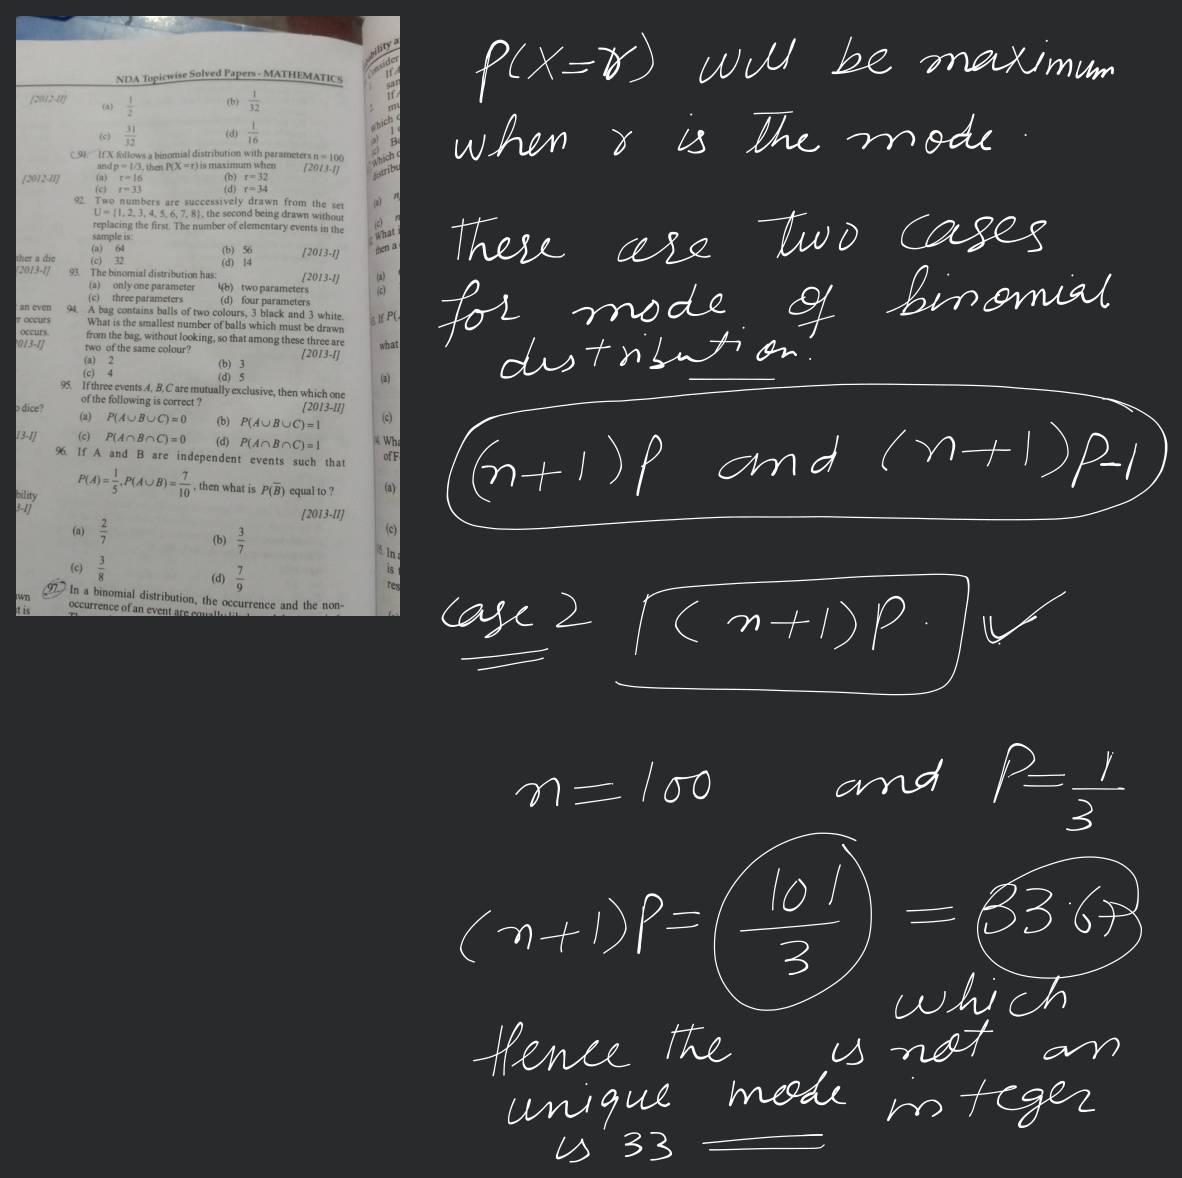 NDA Topicwise Solved Papers - MATHEMATICS
[2012-II]
(a) 1/2 (b) 1/32
(c) 31/32 (d) 1/16
91. If X follows a binomial distribution with parameters n = 100
and p = 1/3, then P(X = r) is maximum when [2013-I]
(a) r = 16 (b) r = 32
(c) r = 33 (d) r = 34
[2012-II]
92. Two numbers are successively drawn from the set
U = {1, 2, 3, 4, 5, 6, 7, 8}, the second being drawn without
replacing the first. The number of elementary events in the
sample is:
(a) 64 (b) 56 [2013-I]
(c) 32 (d) 14
ther a die
[2013-I]
93. The binomial distribution has: [2013-I]
(a) only one parameter (b) two parameters
(c) three parameters (d) four parameters
an even
occurs
occurs.
2013-I]
94. A bag contains balls of two colours, 3 black and 3 white.
What is the smallest number of balls which must be drawn
from the bag, without looking, so that among these three are
two of the same colour? [2013-I]
(a) 2 (b) 3
(c) 4 (d) 5
95. If three events A, B, C are mutually exclusive, then which one
of the following is correct ? [2013-II]
dice?
(a) P(A∪B∪C) = 0 (b) P(A∪B∪C) = 1
13-I]
(c) P(A∩B∩C) = 0 (d) P(A∩B∩C) = 1
96. If A and B are independent events such that
P(A) = 1/5, P(A∪B) = 7/10, then what is P(B̅) equal to ?
bility
3-I]
[2013-II]
(a) 2/7 (b) 3/7
(c) 3/8 (d) 7/9
97. In a binomial distribution, the occurrence and the non-
occurrence of an event are equally
P(X=r) will be maximum
when r is the mode.
There are two cases
for mode of binomial
distribution.
(n+1)P and (n+1)P-1
case 2 (n+1)P.
n=100 and P=1/3
(n+1)P= 101/3 = 33.67
which
Hence the is not an
unique mode integer
is 33